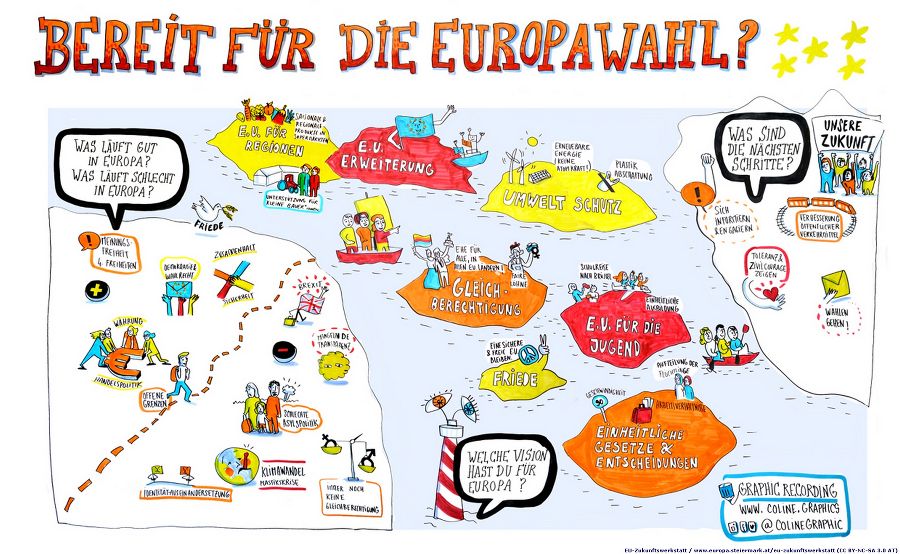 BEREIT FÜR DIE EUROPAWAHL?
WAS LÄUFT GUT
IN EUROPA?
WAS LÄUFT SCHLECHT
IN EUROPA?
MEINUNGS-
FREIHEIT
4 FREIHEITEN
FRIEDE
DEMOKRATIE &
WAHLRECHT
ZUSAMMENHALT
SICHERHEIT
WÄHRUNG
HANDELSPOLITIK
OFFENE
GRENZEN
BREXIT
MANGELNDE
TRANSPARENZ
SCHLECHTE
ASYLPOLITIK
KLIMAWANDEL
IDENTITÄTSAUSEINANDERSETZUNG
IMMER NOCH
KEINE
GLEICHBERECHTIGUNG
E.U. FÜR
REGIONEN
SAISONALE &
REGIONALE
PRODUKTE IN
SUPERMÄRKTEN
UNTERSTÜTZUNG FÜR
E.U.
ERWEITERUNG
ERNEUERBARE
ENERGIE
KEINE
ATOMKRAFT!
PLASTIK
ABSCHAFFUNG
UMWELT SCHUTZ
EHE FÜR
ALLE, IN
ALLEN EU LÄNDERN
FAIRE
LÖHNE
GLEICH-
BERECHTIGUNG
SCHULREISE
NACH BRÜSSEL
EINHEITLICHE
AUSBILDUNG
E.U. FÜR DIE
JUGEND
EINE SICHERE
& FREIE EU
BLEIBEN
FRIEDE
GESCHWINDIGKEIT
AUFTEILUNG DER
FLÜCHTLINGE
EINHEITLICHE
GESETZE &
ENTSCHEIDUNGEN
WELCHE VISION
HAST DU FÜR
EUROPA?
WAS SIND
DIE NÄCHSTEN
SCHRITTE?
UNSERE
ZUKUNFT
SICH
INFORMIEREN
& ENGAGIEREN
VERBESSERUNG
ÖFFENTLICHER
VERKEHRSMITTEL
TOLERANZ &
ZIVILCOURAGE
ZEIGEN
WÄHLEN
GEHEN!
GRAPHIC RECORDING
WWW.COLINE.GRAPHICS
@COLINEGRAPHIC
EU-Zukunftswerkstatt / www.europa.steiermark.at/eu-zukunftswerkstatt (CC BY-NC-SA 3.0 AT)